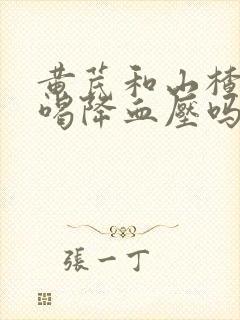 黄芪和山楂
喝降血壓吗
張一丁